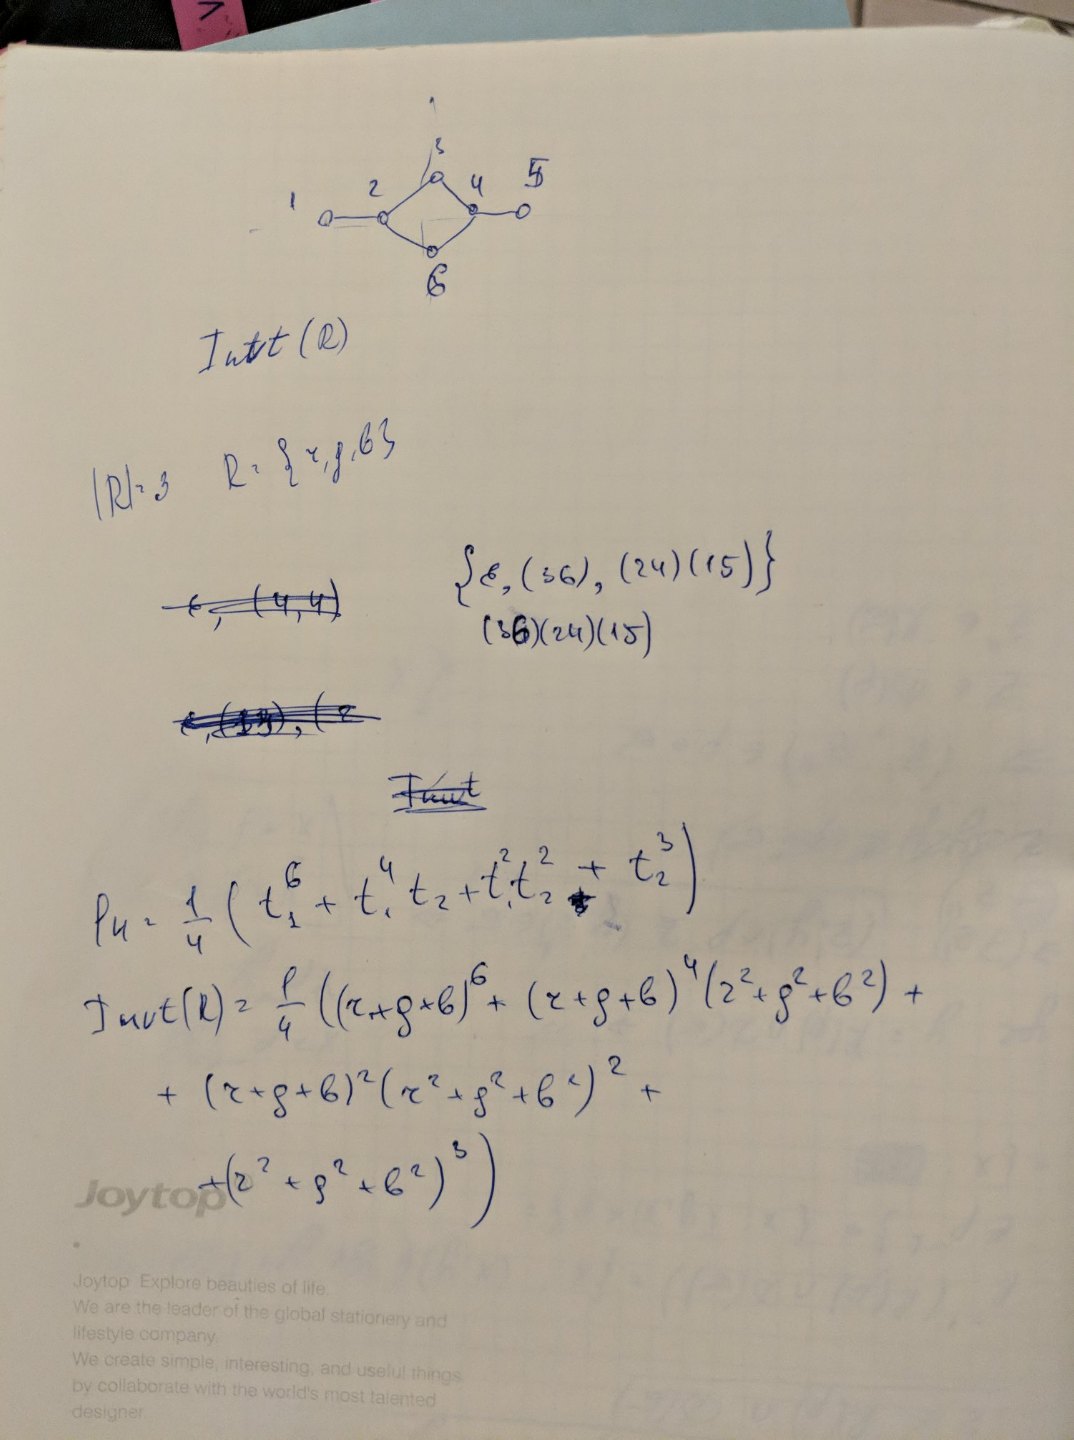 1 2 3 4 5 6
Invt(R)
|R|=3 R = {r, g, b}
ε, (4,4)
{ε, (36), (24)(15)}
(36)(24)(15)
ε, (13), (2
Invt
P_H = 1/4 ( t_1^6 + t_1^4 t_2 + t_1^2 t_2^2 + t_2^3 )
Invt(R) = 1/4 ((r+g+b)^6 + (r+g+b)^4 (r^2+g^2+b^2) +
+ (r+g+b)^2 (r^2+g^2+b^2)^2 +
+ (r^2+g^2+b^2)^3 )
Joytop
Joytop Explore beauties of life.
We are the leader of the global stationery and
lifestyle company.
We create simple, interesting, and useful things
by collaborate with the world's most talented
designer.